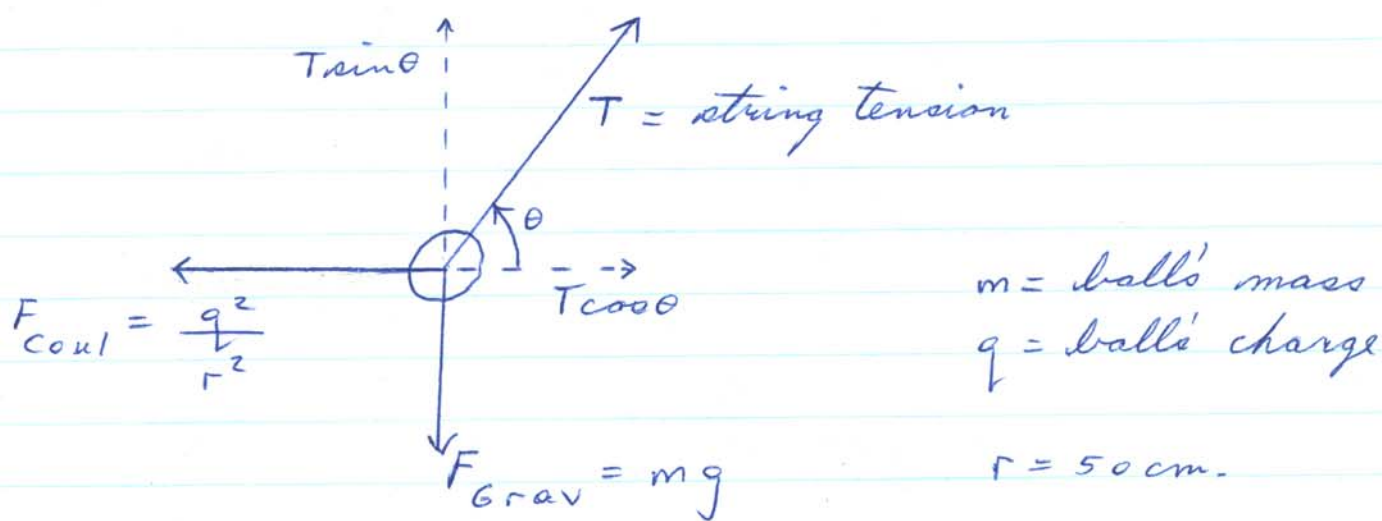 T sin θ
T = string tension
θ
T cos θ
F Coul = q² / r²
m = ball's mass
q = ball's charge
F Grav = mg
r = 50 cm.